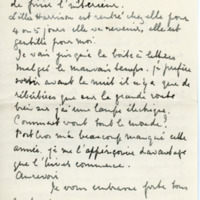 de finir l'intérieur.
Lilla Harrison est rentré chez elle pour
4 ou 5 jours elle va revenir, elle est
gentille pour moi.
Je vais jusqu'à la boîte à lettres
malgré le mauvais temps. Je préfère
sortir avant la nuit il n'y a que de
réverbères que sur la grande route
mais j'ai une lampe électrique.
Comment vont tout le monde?
Port Cros m'a beaucoup manqué cette
année, je m'en aperçois davantage
que l'hiver commence.
Au revoir
Je vous embrasse forte tous